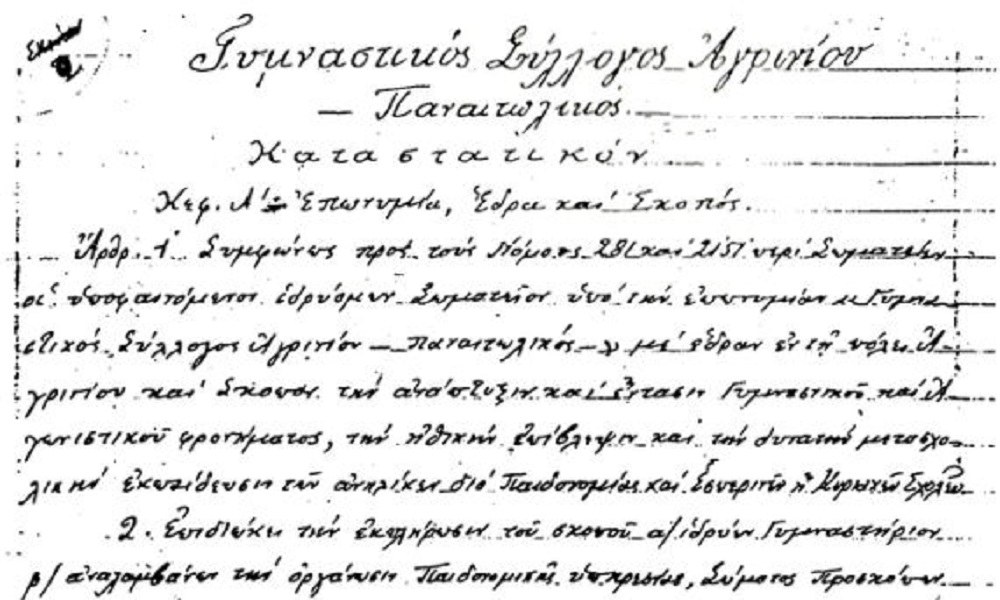 Γυμναστικός Σύλλογος Ἀγρινίου
— Παναιτωλικός —
Καταστατικόν
Κεφ. Α΄ Ἐπωνυμία, Ἕδρα καί Σκοπός.
Ἄρθρ. 1 Συμφώνως πρός τούς Νόμους 281 καί 2151 περί Σωματείων
οἱ ὑποφαινόμενοι ἱδρύομεν Σωματεῖον ὑπό τήν ἐπωνυμίαν « Γυμνα
στικός Σύλλογος Ἀγρινίου — Παναιτωλικός — » μέ ἕδραν ἐν τῇ πόλει Ἀ
γρινίου καί Σκοπόν τήν ἀνάπτυξιν καί ἔντασιν Γυμναστικοῦ καί Ἀ
γωνιστικοῦ φρονήματος, τήν ἠθικήν ἐπίβλεψιν καί τήν δυνατήν μετασχο
λικήν ἐκπαίδευσιν τῶν ἀνηλίκων διά Παιδονομίας καί Ἑσπερινῶν ἤ Κυριακῶν Σχολῶν
2. Ἐπιδιώκει τήν ἐκπλήρωσιν τοῦ σκοποῦ α/ ἱδρύων Γυμναστήριον
β/ ἀναλαμβάνων τήν ὀργάνωσιν Παιδονομικῆς ὑπηρεσίας, Σώματος Προσκόπων